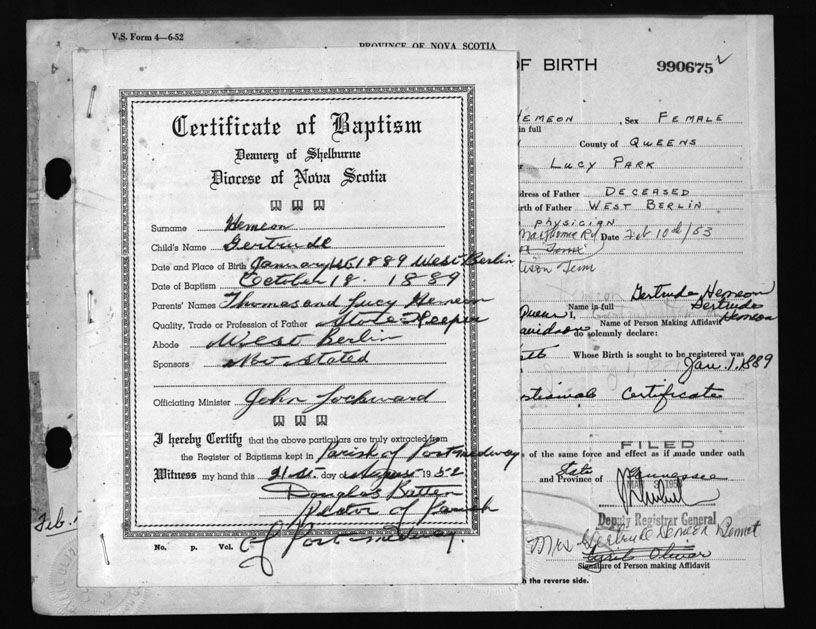 V.S. Form 4—6-52
PROVINCE OF NOVA SCOTIA
Certificate of Baptism
Deanery of Shelburne
Diocese of Nova Scotia
Surname Hemeon
Child's Name Gertrude
Date and Place of Birth January 1st 1889 West Berlin
Date of Baptism October 18. 1889
Parents' Names Thomas and Lucy Hemeon
Quality, Trade or Profession of Father Store-Keeper
Abode West Berlin
Sponsors Not Stated
Officiating Minister John Lockward
I hereby Certify that the above particulars are truly extracted from
the Register of Baptisms kept in Parish of Port Medway
Witness my hand this 21st. day of August 1952
Douglas Batten
Rector of Parish
of Port Medway.
No. p. Vol.
Feb.
OF BIRTH
990675
HEMEON, Sex FEMALE
in full
County of QUEENS
LUCY PARK
dress of Father DECEASED
rth of Father WEST BERLIN
PHYSICIAN
Date Feb 10th/53
Gertrude Hemeon
Name in full Gertrude
Queens I, Hemeon
Name of Person Making Affidavit
avidson do solemnly declare:
Whose Birth is sought to be registered was
Jan. 1. 1889
Certificate
FILED
of the same force and effect as if made under oath
State
and Province of Tennessee
Deputy Registrar General
Mrs Gertrude Hemeon Bennet
Signature of Person making Affidavit
n the reverse side.